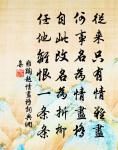 從來只有情難盡
何事名為情盡橋
自此改名為折柳
任他離恨一條條
雍陶題情盡橋詞典網
集